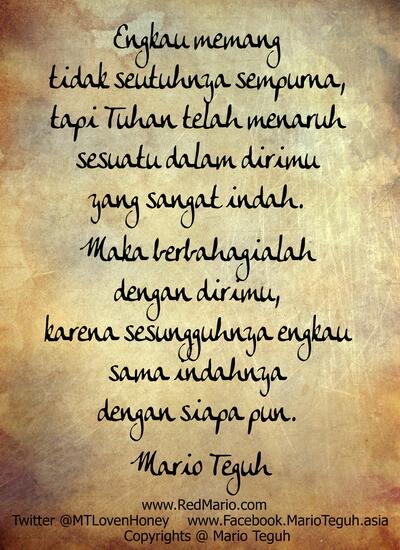 Engkau memang
tidak seutuhnya sempurna,
tapi Tuhan telah menaruh
sesuatu dalam dirimu
yang sangat indah.
Maka berbahagialah
dengan dirimu,
karena sesungguhnya engkau
sama indahnya
dengan siapa pun.
Mario Teguh
www.RedMario.com
Twitter @MTLovenHoney www.Facebook.MarioTeguh.asia
Copyrights @ Mario Teguh